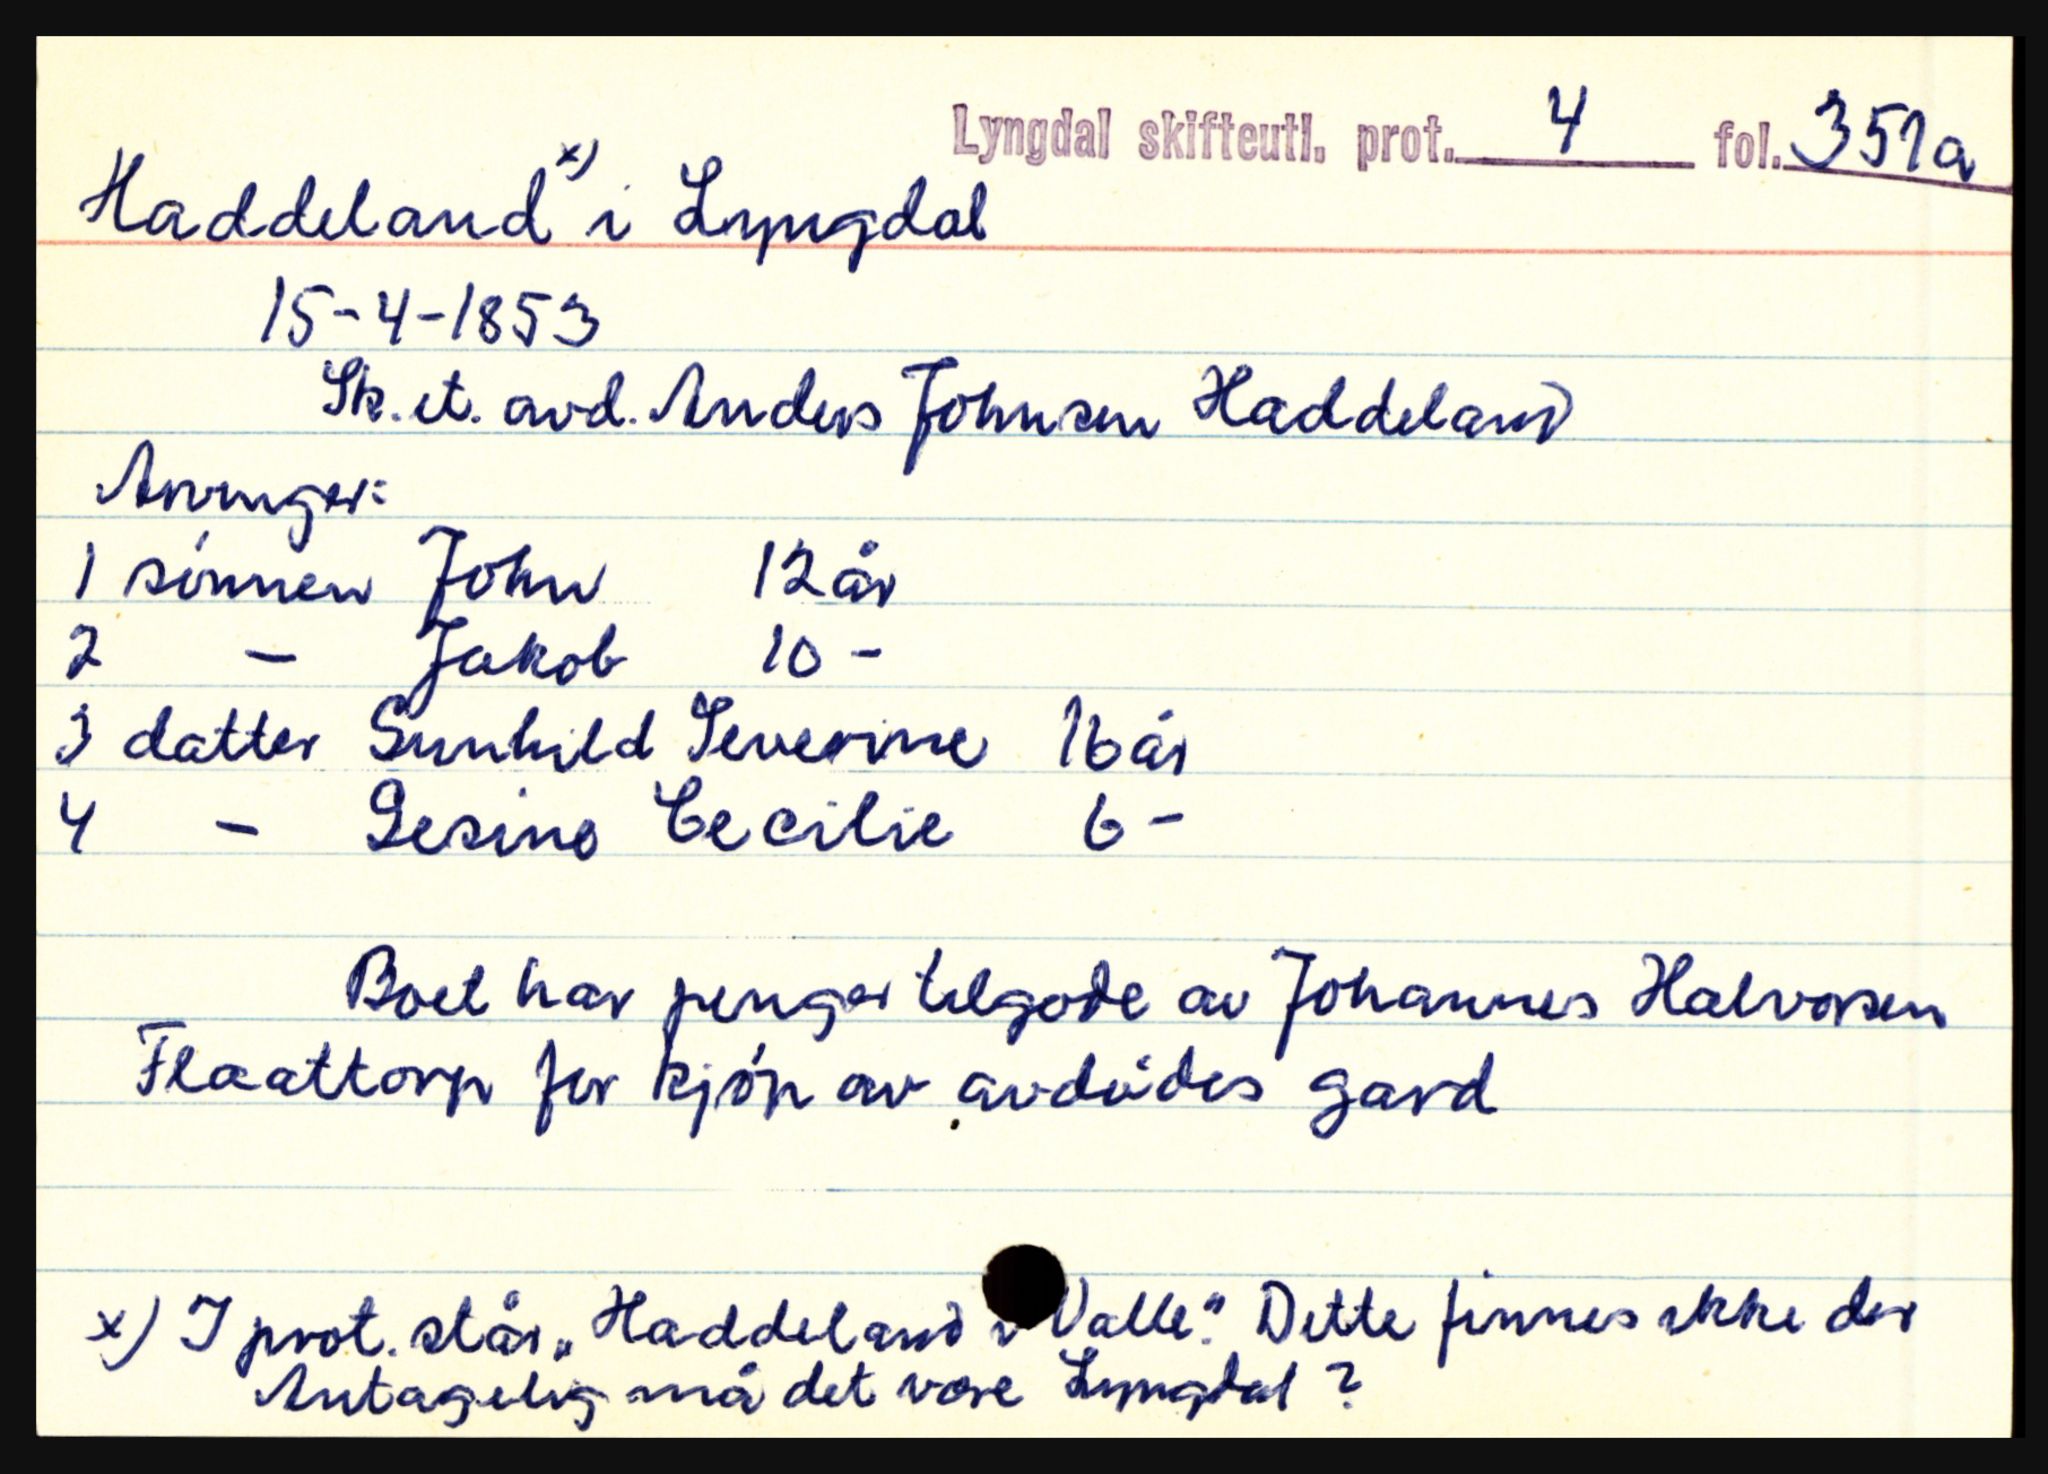 Lyngdal skifteutl. prot. 4 fol. 351a
Haddeland x) i Lyngdal
15-4-1853
Sk. et. avd. Anders Johnsen Haddeland
Arvinger:
1 sønnen John 12 år
2 - Jakob 10 -
3 datter Gunhild Severine 16 år
4 - Gesine Cecilie 6 -
Boet har penger tilgode av Johannes Halvorsen
Flaattorp for kjøp av avdødes gard
x) I prot. står „Haddeland i Valle". Dette finnes ikke der
Antagelig må det være Lyngdal?